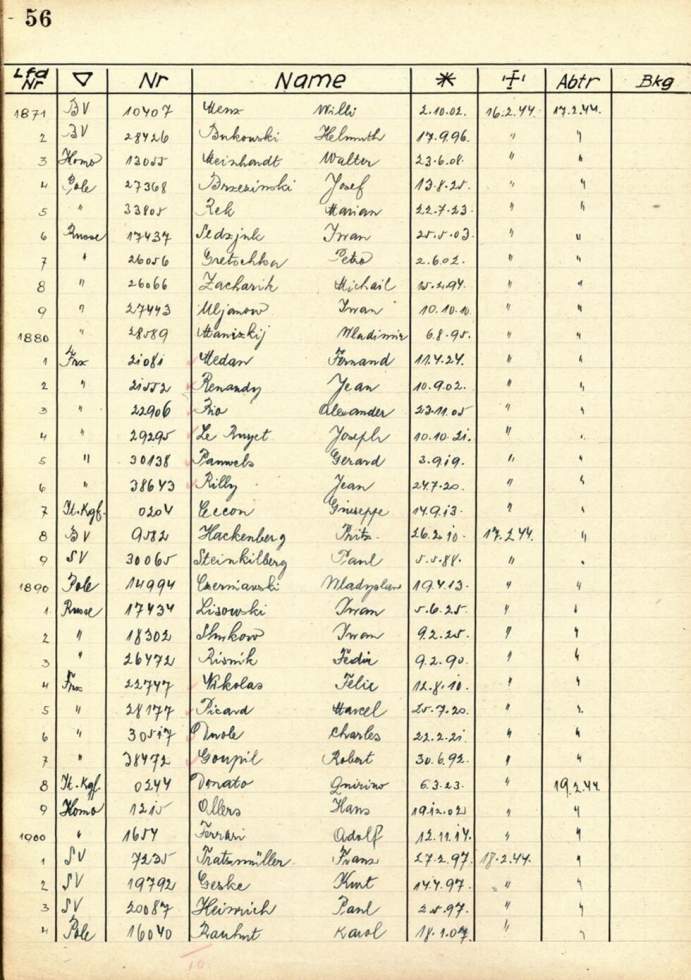 56
Lfd Nr ▽ Nr Name * ✝ Abtr Bkg
1871 BV 10407 Menz Willi 2.10.02. 16.2.44. 17.2.44.
2 BV 28426 Bukowski Helmuth 17.9.96. " "
3 Homo 13055 Meinhardt Walter 23.6.08. " "
4 Pole 27368 Brzezinski Josef 13.8.25. " "
5 " 33805 Rek Marian 22.7.23. " "
6 Russe 17437 Iwan 25.5.03. " "
7 " 26056 Gretschka Petro 2.6.02. " "
8 " 26066 Zacharik Michail " "
9 " 27443 Uljanow Iwan 10.10.10. " "
1880 " 28589 Wladimir 6.8.95. " "
1 Frz 21081 Medan Fernand 11.4.24. " "
2 " 21552 Jean 10.9.02. " "
3 " 22906 Rio Alexander 23.11.05 " "
4 " 29295 Le Joseph 10.10.21. " "
5 " 30138 Pauwels Gerard 3.9.19. " "
6 " 38643 Rilly Jean 24.7.20. " "
7 It.Kgf. 0204 Ceccon Giuseppe 14.9.13. " "
8 BV 9582 Hackenberg Fritz 26.2.10. 17.2.44. "
9 SV 30065 Steinkilberg Paul 5.5.88. " "
1890 Pole 14994 Czerniawski Wladyslaw 19.4.13. " "
1 Russe 17434 Lisowski Iwan 5.6.25. " "
2 " 18302 Iwan 9.2.25. " "
3 " 26472 Risnik Fedir 9.2.90. " "
4 Frz 22747 Nikolas Felix 12.8.10. " "
5 " 28177 Picard Marcel 25.7.20. " "
6 " 30517 Charles 22.2.21. " "
7 " 38492 Goupil Robert 30.6.92. " "
8 It.Kgf. 0244 Donato Quirino 6.3.23. " 19.2.44.
9 Homo 1215 Ollers Hans 19.12.02 " "
1900 " 1654 Ferrari Adolf 12.11.14. " "
1 SV 7235 Tratzmüller Franz 27.2.97. 18.2.44. "
2 SV 19792 Geske Kurt 14.4.97. " "
3 SV 20087 Heinrich Paul 2.5.97. " "
4 Pole 16040 Karol 18.1.07. " "
10